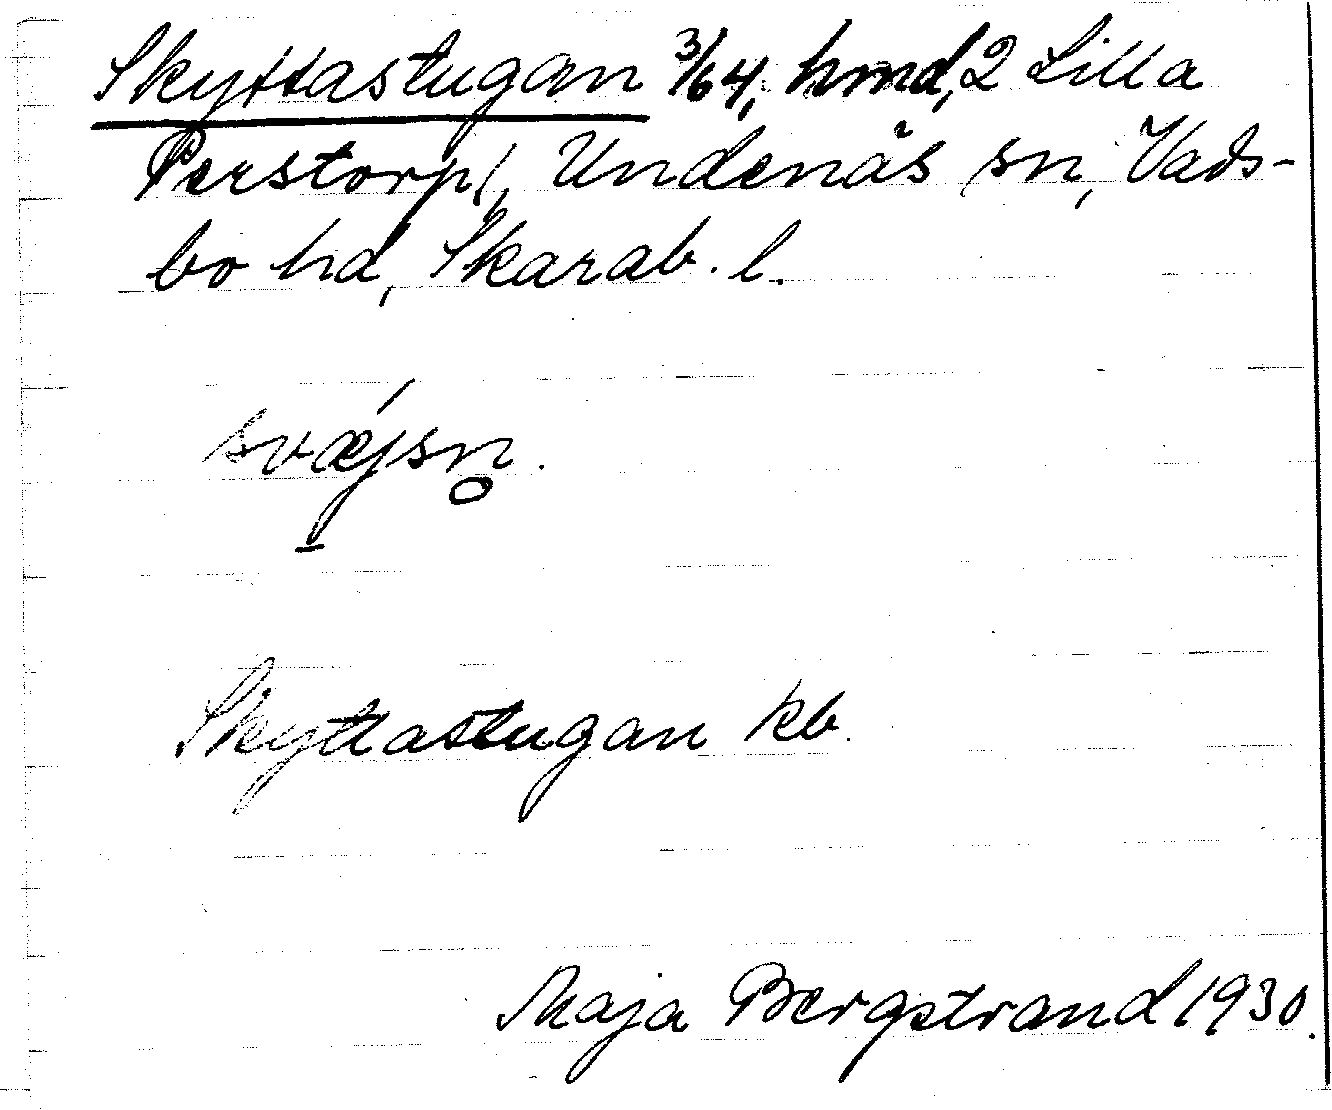 Skyttastugan 3/64, hmd, 2 Lilla
Perstorp/, Undenäs sn, Vads-
bo hd, Skarab. l.
svǽjsn̥.
Skyttastugan kb.
Maja Bergstrand 1930.